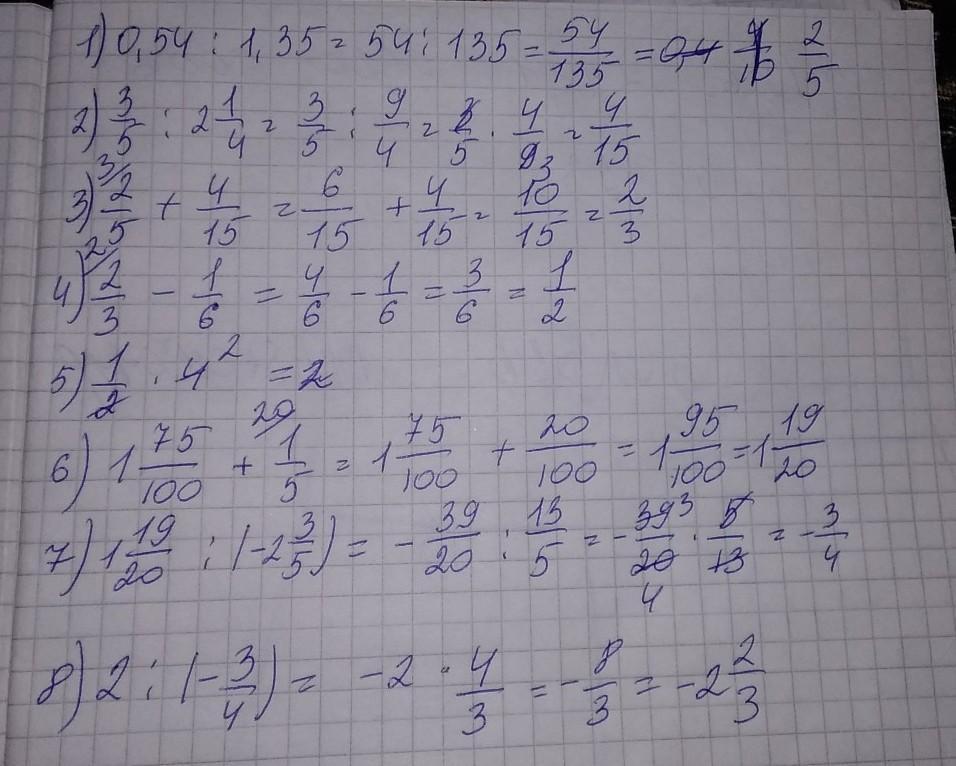 1) 0,54 : 1,35 = 54 : 135 = 54/135 = 0,4 4/10 2/5
2) 3/5 : 2 1/4 = 3/5 : 9/4 = 3/5 · 4/9 3 = 4/15
3) 3/ 2/5 + 4/15 = 6/15 + 4/15 = 10/15 = 2/3
4) 2/ 2/3 - 1/6 = 4/6 - 1/6 = 3/6 = 1/2
5) 1/2 · 4 2 = 2
6) 1 75/100 + 20/ 1/5 = 1 75/100 + 20/100 = 1 95/100 = 1 19/20
7) 1 19/20 : (-2 3/5) = - 39/20 : 13/5 = - 39 3/20 4 · 5/13 = - 3/4
8) 2 : (- 3/4) = -2 · 4/3 = - 8/3 = -2 2/3